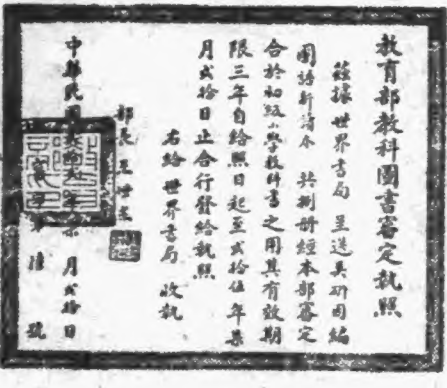 教育部教科圖書審定執照
茲據世界書局呈送吳研因編
國語新讀本 共捌冊經本部審定
合於初級小學教科書之用其有效期
限三年自給照日起至貳拾伍年柒
月貳拾日止合行發給執照
右給世界書局收執
部長 王世杰
中華民國貳拾貳年柒月貳拾日
字第 陸 號